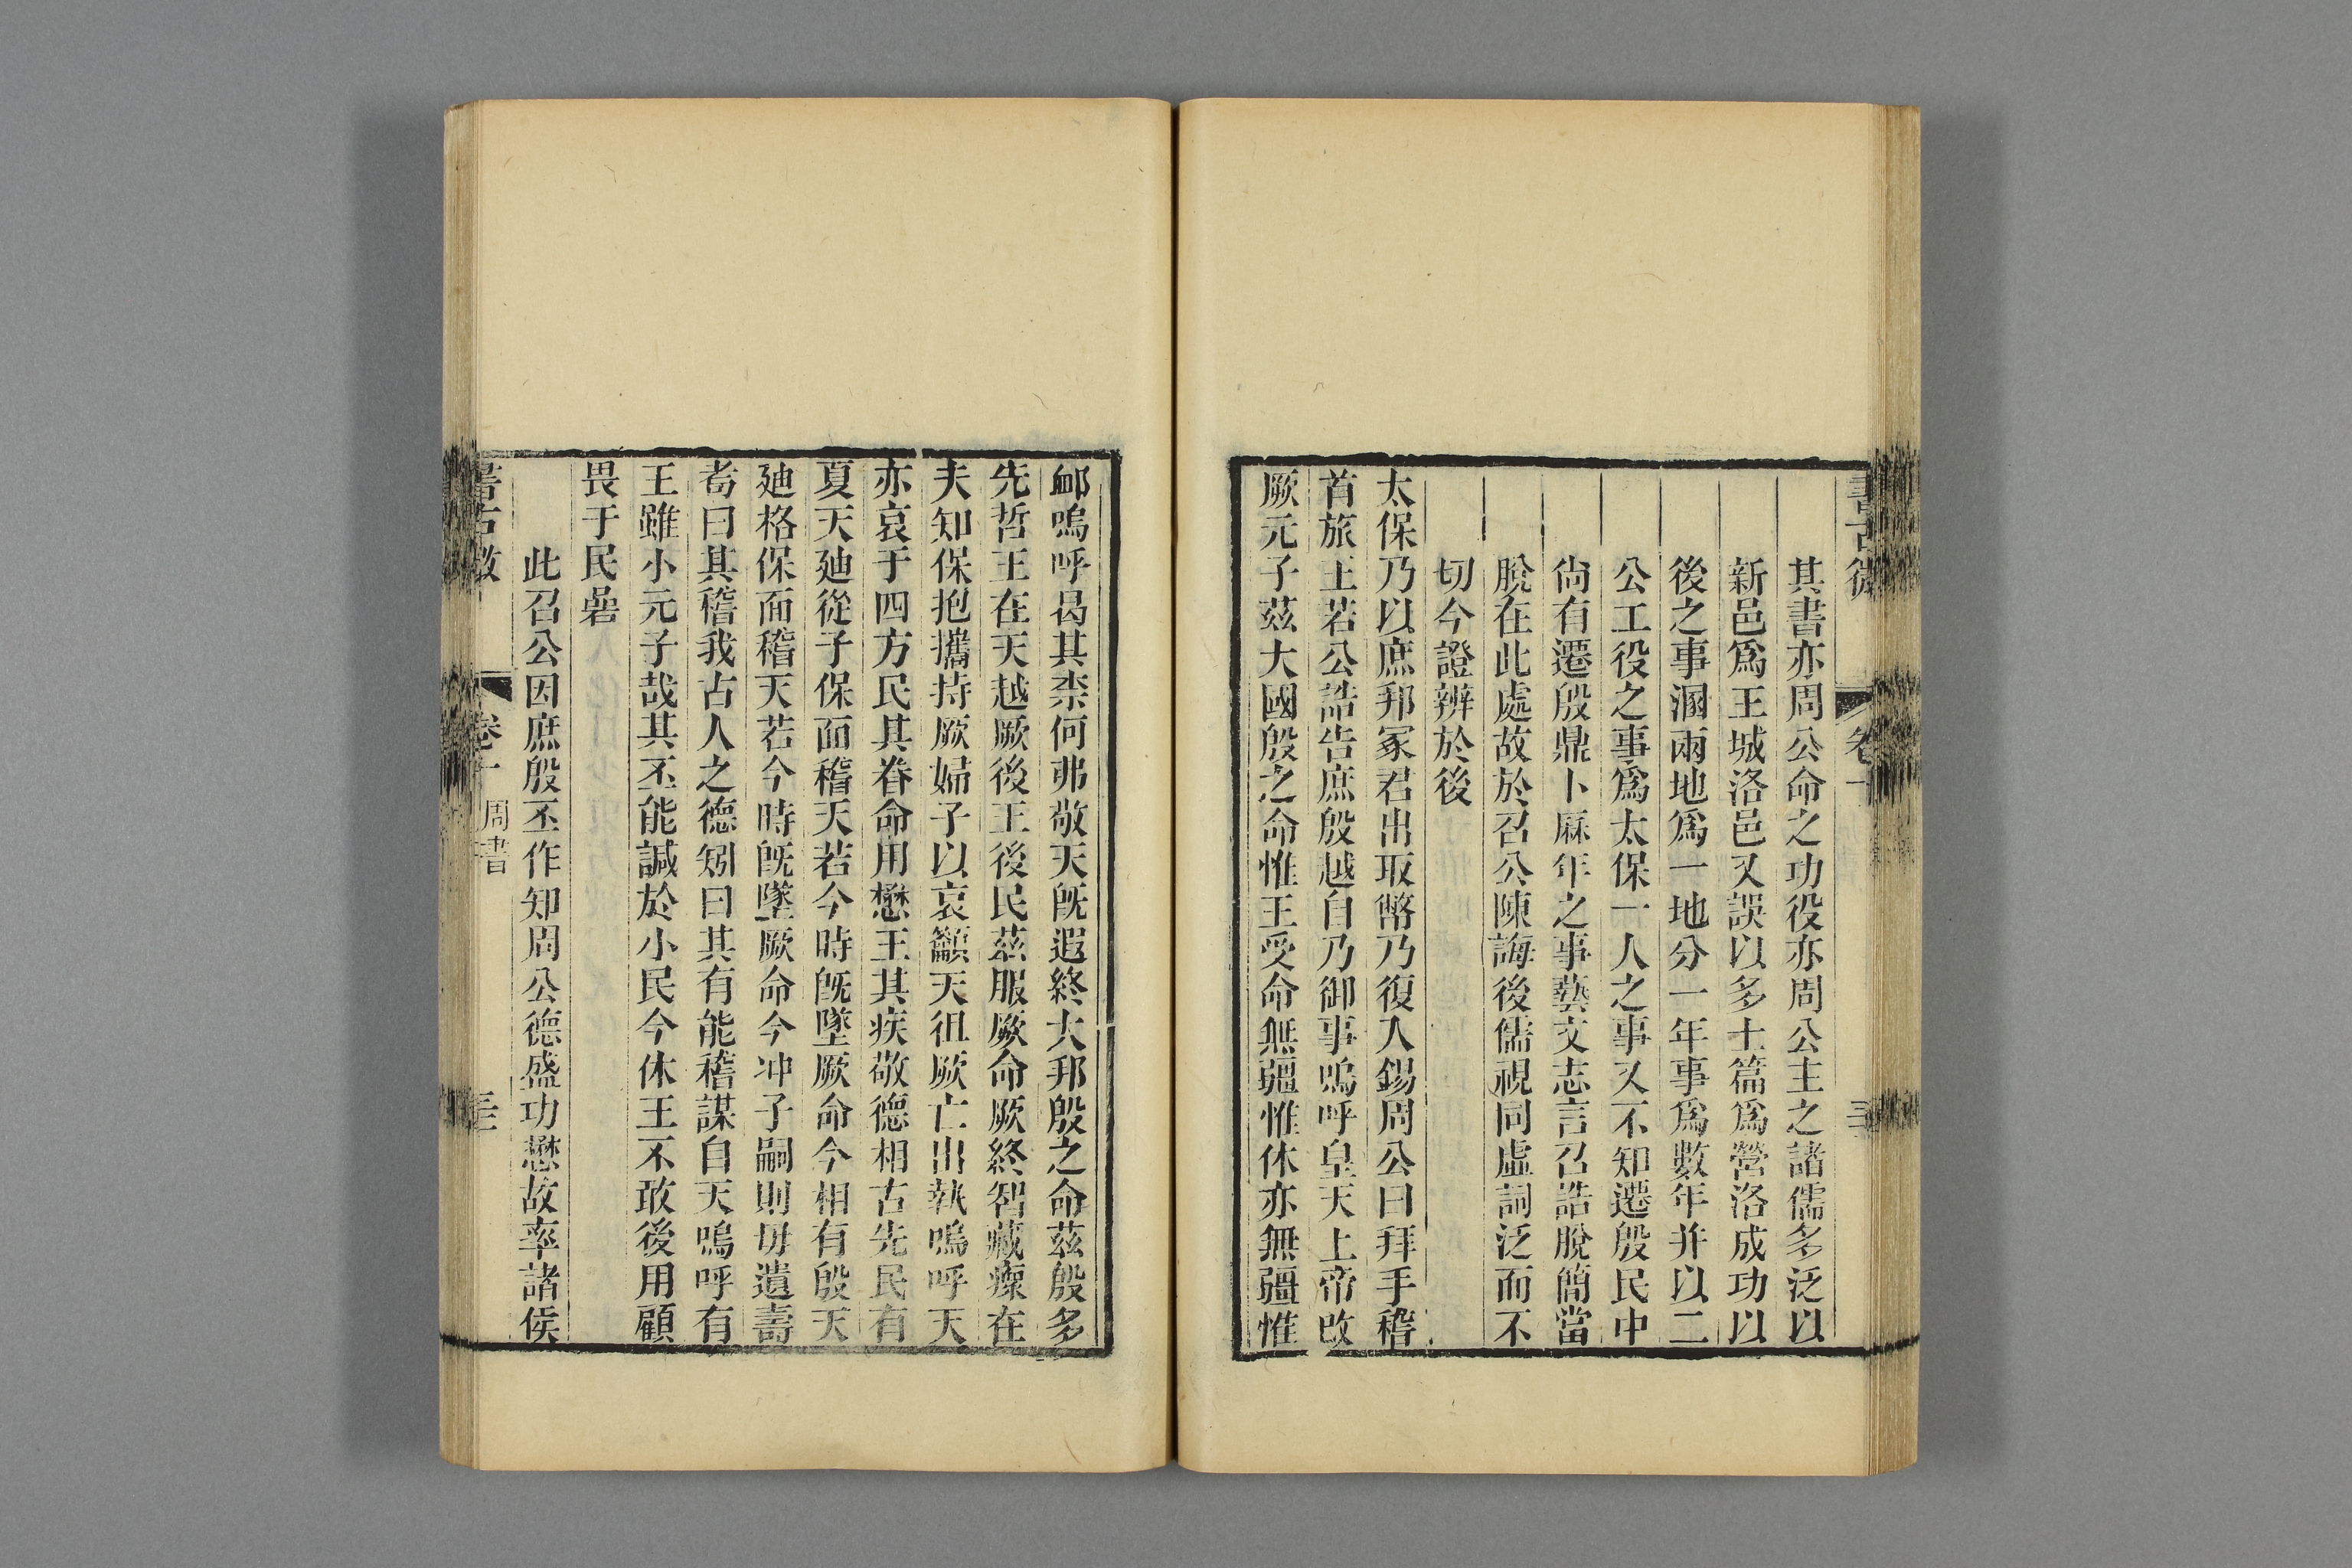 書古微 卷十
其書亦周公命之功役亦周公主之諸儒多泛以
新邑爲王城洛邑又誤以多士篇爲營洛成功以
後之事溷兩地爲一地分一年事爲數年并以二
公工役之事爲太保一人之事又不知遷殷民中
尙有遷殷鼎卜厤年之事藝文志言召誥脫簡當
脫在此處故於召公陳誨後儒視同虛詞泛而不
切今證辨於後
太保乃以庶邦冢君出取幣乃復入錫周公曰拜手稽
首旅王若公誥告庶殷越自乃御事嗚呼皇天上帝改
厥元子茲大國殷之命惟王受命無疆惟休亦無疆惟
卹嗚呼曷其柰何弗敬天旣遐終大邦殷之命茲殷多
先哲王在天越厥後王後民茲服厥命厥終智藏瘝在
夫知保抱攜持厥婦子以哀籲天徂厥亡出執嗚呼天
亦哀于四方民其眷命用懋王其疾敬德相古先民有
夏天迪從子保面稽天若今時旣墜厥命今相有殷天
迪格保面稽天若今時旣墜厥命今冲子嗣則毋遺壽
耇曰其稽我古人之德矧曰其有能稽謀自天嗚呼有
王雖小元子哉其丕能諴於小民今休王不敢後用顧
畏于民碞
此召公因庶殷丕作知周公德盛功懋故率諸侯
書古微 卷十 周書